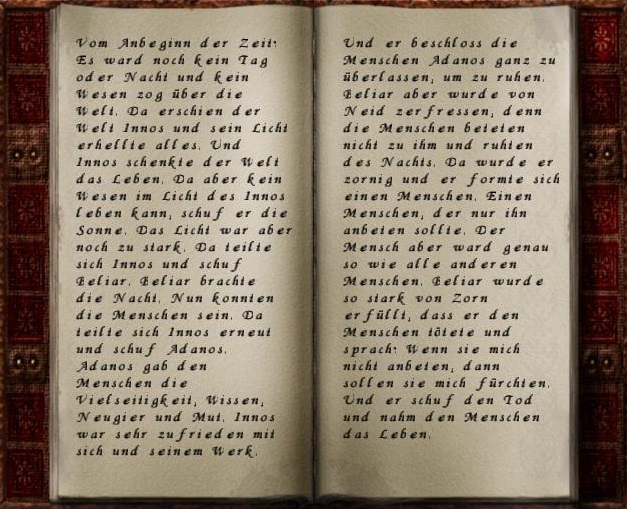 Vom Anbeginn der Zeit:
Es ward noch kein Tag
oder Nacht und kein
Wesen zog über die
Welt. Da erschien der
Welt Innos und sein Licht
erhellte alles. Und
Innos schenkte der Welt
das Leben. Da aber kein
Wesen im Licht des Innos
leben kann, schuf er die
Sonne. Das Licht war aber
noch zu stark. Da teilte
sich Innos und schuf
Beliar. Beliar brachte
die Nacht. Nun konnten
die Menschen sein. Da
teilte sich Innos erneut
und schuf Adanos.
Adanos gab den
Menschen die
Vielseitigkeit, Wissen,
Neugier und Mut. Innos
war sehr zufrieden mit
sich und seinem Werk.
Und er beschloss die
Menschen Adanos ganz zu
überlassen, um zu ruhen.
Beliar aber wurde von
Neid zerfressen, denn
die Menschen beteten
nicht zu ihm und ruhten
des Nachts. Da wurde er
zornig und er formte sich
einen Menschen. Einen
Menschen, der nur ihn
anbeten sollte. Der
Mensch aber ward genau
so wie alle anderen
Menschen. Beliar wurde
so stark von Zorn
erfüllt, dass er den
Menschen tötete und
sprach: Wenn sie mich
nicht anbeten, dann
sollen sie mich fürchten.
Und er schuf den Tod
und nahm den Menschen
das Leben.